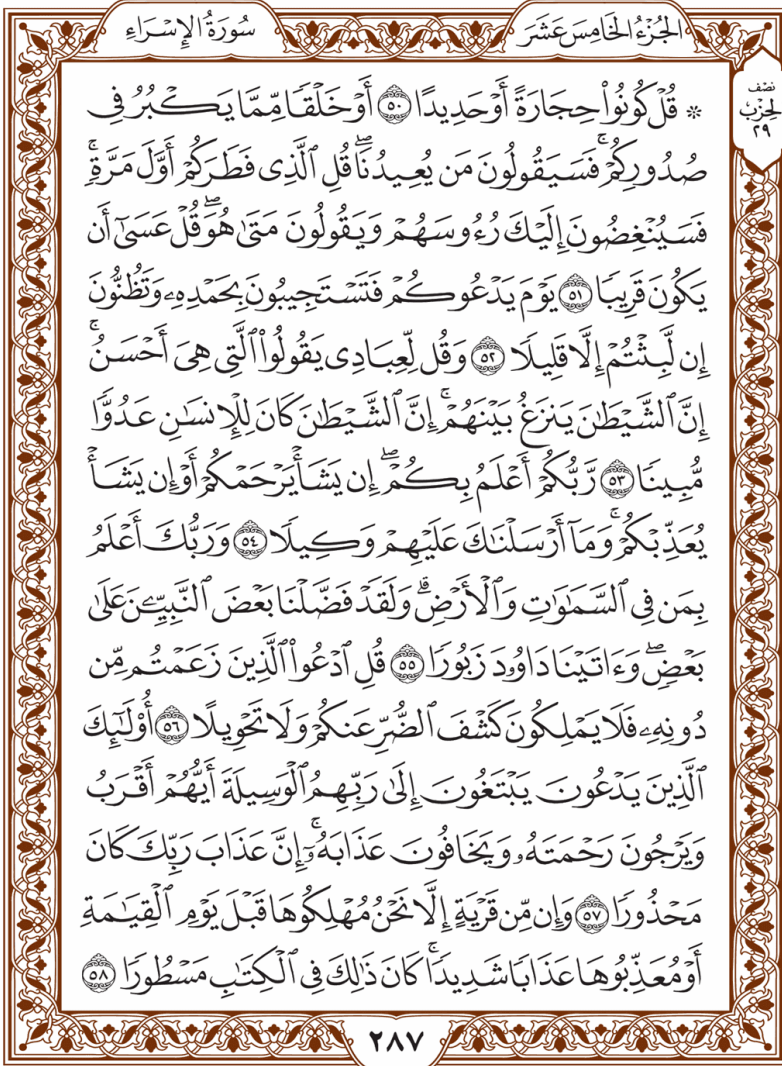 الجُزْءُ الخَامِسَ عَشَرَ
سُورَةُ الإِسْرَاءِ
نصف
الحزب
٢٩
۞ قُلْ كُونُواْ حِجَارَةً أَوْ حَدِيدًا ٥٠ أَوْ خَلْقًا مِّمَّا يَكْبُرُ فِى
صُدُورِكُمْۚ فَسَيَقُولُونَ مَن يُعِيدُنَاۖ قُلِ ٱلَّذِى فَطَرَكُمْ أَوَّلَ مَرَّةٍۚ
فَسَيُنْغِضُونَ إِلَيْكَ رُءُوسَهُمْ وَيَقُولُونَ مَتَىٰ هُوَۖ قُلْ عَسَىٰٓ أَن
يَكُونَ قَرِيبًا ٥١ يَوْمَ يَدْعُوكُمْ فَتَسْتَجِيبُونَ بِحَمْدِهِۦ وَتَظُنُّونَ
إِن لَّبِثْتُمْ إِلَّا قَلِيلًا ٥٢ وَقُل لِّعِبَادِى يَقُولُواْ ٱلَّتِى هِىَ أَحْسَنُۚ
إِنَّ ٱلشَّيْطَٰنَ يَنزَغُ بَيْنَهُمْۚ إِنَّ ٱلشَّيْطَٰنَ كَانَ لِلْإِنسَٰنِ عَدُوًّا
مُّبِينًا ٥٣ رَّبُّكُمْ أَعْلَمُ بِكُمْۖ إِن يَشَأْ يَرْحَمْكُمْ أَوْ إِن يَشَأْ
يُعَذِّبْكُمْۚ وَمَآ أَرْسَلْنَٰكَ عَلَيْهِمْ وَكِيلًا ٥٤ وَرَبُّكَ أَعْلَمُ
بِمَن فِى ٱلسَّمَٰوَٰتِ وَٱلْأَرْضِۗ وَلَقَدْ فَضَّلْنَا بَعْضَ ٱلنَّبِيِّـۧنَ عَلَىٰ
بَعْضٍۖ وَءَاتَيْنَا دَاوُۥدَ زَبُورًا ٥٥ قُلِ ٱدْعُواْ ٱلَّذِينَ زَعَمْتُم مِّن
دُونِهِۦ فَلَا يَمْلِكُونَ كَشْفَ ٱلضُّرِّ عَنكُمْ وَلَا تَحْوِيلًا ٥٦ أُوْلَٰٓئِكَ
ٱلَّذِينَ يَدْعُونَ يَبْتَغُونَ إِلَىٰ رَبِّهِمُ ٱلْوَسِيلَةَ أَيُّهُمْ أَقْرَبُ
وَيَرْجُونَ رَحْمَتَهُۥ وَيَخَافُونَ عَذَابَهُۥٓۚ إِنَّ عَذَابَ رَبِّكَ كَانَ
مَحْذُورًا ٥٧ وَإِن مِّن قَرْيَةٍ إِلَّا نَحْنُ مُهْلِكُوهَا قَبْلَ يَوْمِ ٱلْقِيَٰمَةِ
أَوْ مُعَذِّبُوهَا عَذَابًا شَدِيدًاۚ كَانَ ذَٰلِكَ فِى ٱلْكِتَٰبِ مَسْطُورًا ٥٨
٢٨٧